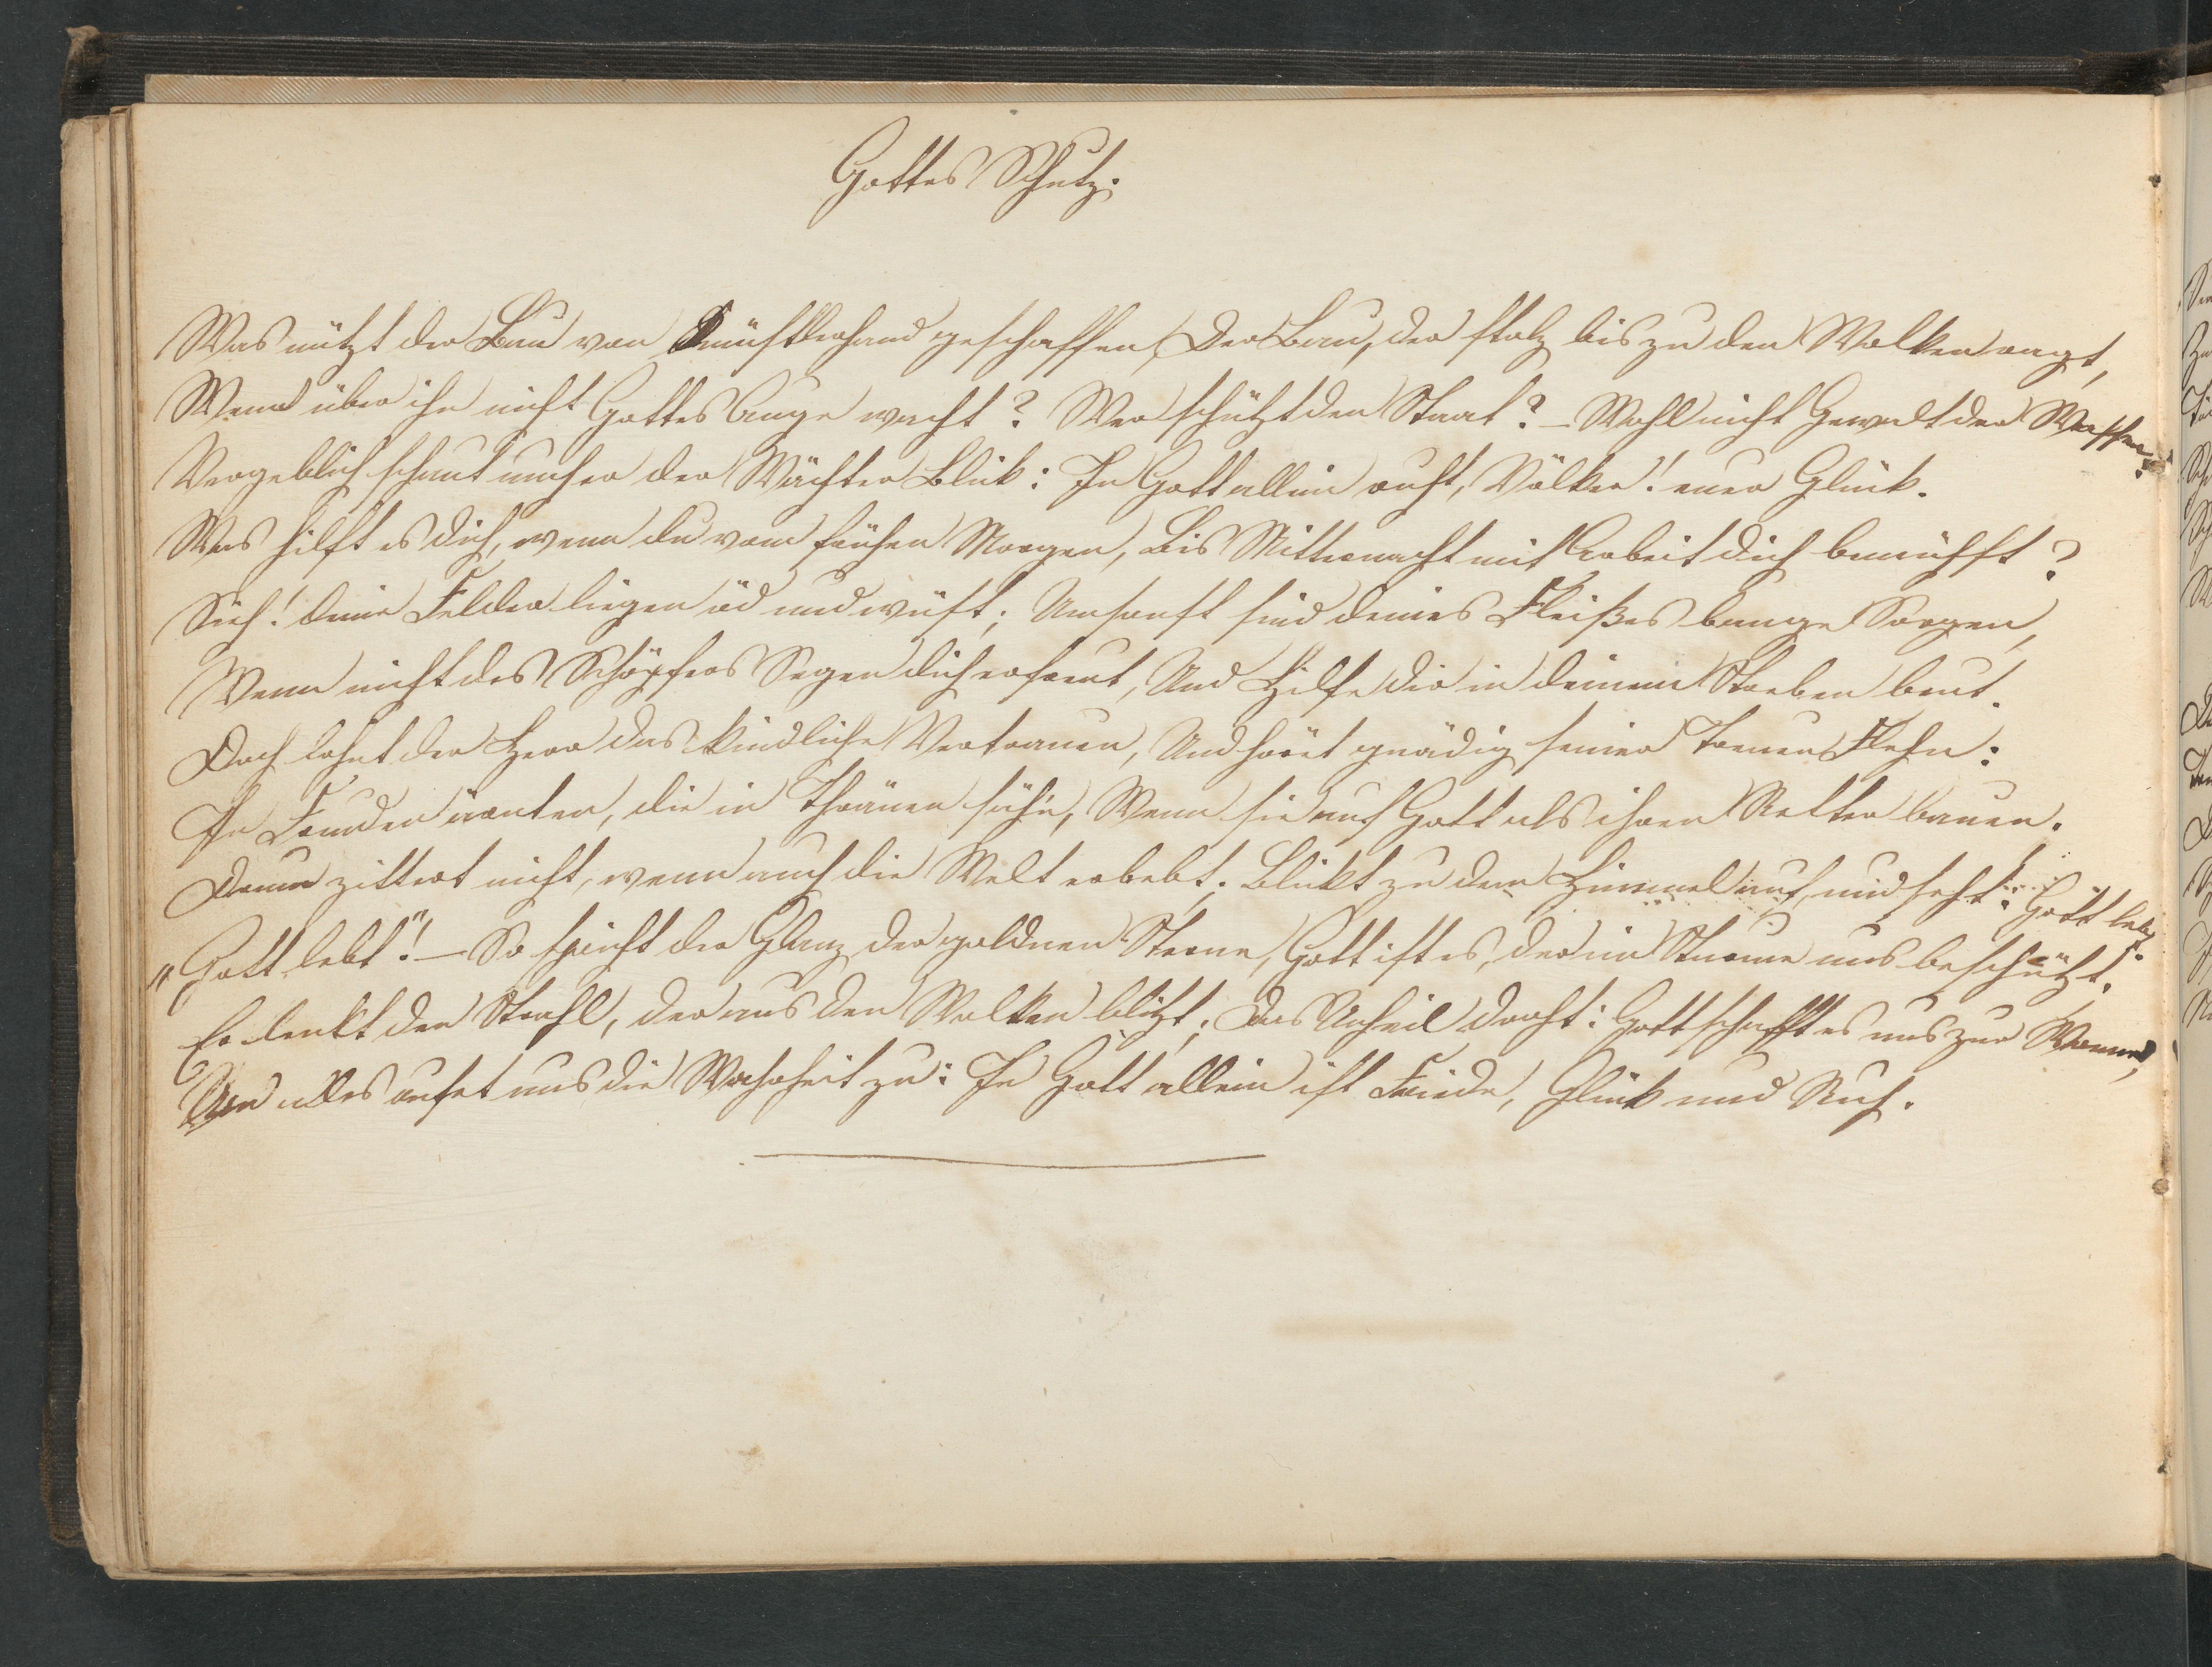 Gottes Schutz.
Was nützt der Bau von Künstlerhand geschaffen, Der Bau, der stolz bis zu den Wolken ragt,
Wenn über ihn nicht Gottes Auge wacht? Wer schützt den Staat? – Wohl nicht Gewalt der Waffen.
Vergeblich schaut umher der Wächter Blick: In Gott allein ruht, Völker! euer Glück.
Was hilft es dich, wenn du vom frühen Morgen, Bis Mitternacht mit Arbeit dich bemühst?
Sieh! deine Felder liegen öd und wüst; Umsonst sind deines Fleißes bange Sorgen,
Wenn nicht des Schöpfers Segen dich erfreut, Und Hilfe dir in deinem Streben beut.
Doch lohnt der Herr das kindliche Vertrauen, Und höret gnädig seiner Treuen Flehn:
In Freuden ärnten, die in Thränen sä'n, Wenn sie auf Gott als ihren Retter bauen.
Drum zittert nicht, wenn auch die Welt erbebt; Blickt zu dem Himmel auf, und seht: Gott lebt!
„Gott lebt“! – So spricht der Glanz der goldnen Sterne, Gott ist es, der im Sturme uns beschützt.
Er lenkt den Strahl, der aus den Wolken blitzt; Das Unheil droht: Gott schafft es uns zur Wonne,
Und alles rufet uns die Wahrheit zu: In Gott allein ist Friede, Glück und Ruh.